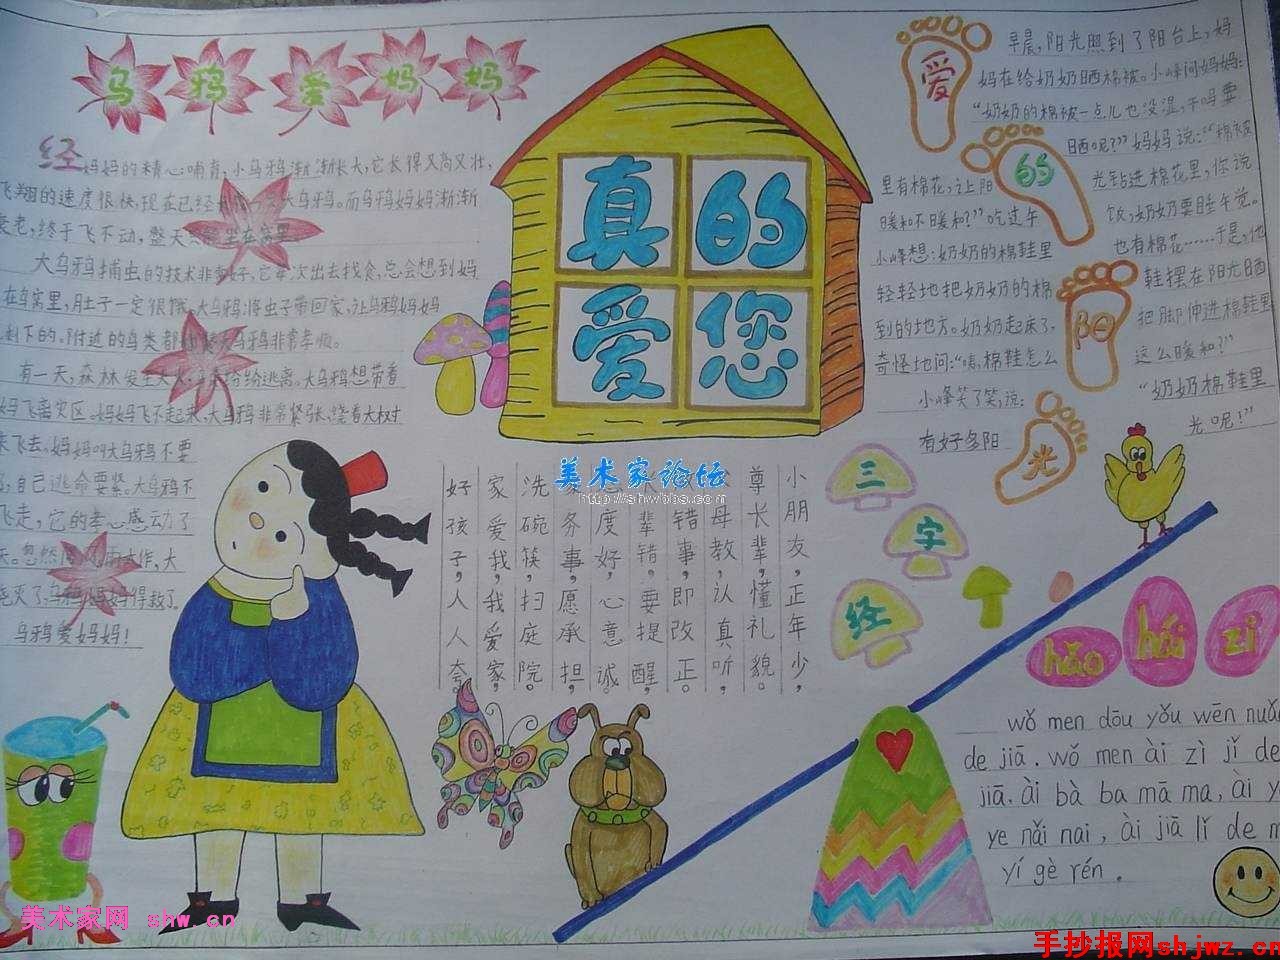 乌鸦爱妈妈
经妈妈的精心哺育,小乌鸦渐渐长大,它长得又高又壮,
飞翔的速度很快,现在已经 大乌鸦。而乌鸦妈妈渐渐
衰老,终于飞不动,整天 坐在窝里。
大乌鸦捕虫的技术非常好,它每次出去找食,总会想到妈
在鸟窝里,肚子一定很饿,大乌鸦将虫子带回家,让乌鸦妈妈
剩下的。附近的鸟类都 乌鸦非常孝顺。
有一天,森林发生大火, 纷纷逃离。大乌鸦想带着
妈飞离灾区。妈妈飞不起来,大乌鸦非常紧张,绕着大树
来飞去。妈妈叫大乌鸦不要
,自己逃命要紧。大乌鸦不
飞走,它的孝心感动了
天。忽然 大作,大
浇灭了,乌鸦妈妈得救了。
乌鸦爱妈妈!
真的
爱您
爱的阳光
早晨,阳光照到了阳台上,妈
妈在给奶奶晒棉被。小峰问妈妈:
“奶奶的棉被一点儿也没湿,干吗要
晒呢?”妈妈说:“棉被
里有棉花,让阳 光钻进棉花里,你说
暖和不暖和?”吃过午 饭,奶奶要睡午觉。
小峰想:奶奶的棉鞋里 也有棉花……于是,他
轻轻地把奶奶的棉 鞋摆在阳光晒
到的地方。奶奶起床了, 把脚伸进棉鞋里
奇怪地问:“咦,棉鞋怎么 这么暖和?”
小峰笑了笑,说: “奶奶棉鞋里
有好多阳 光呢!”
三字经
小朋友,正年少,
尊长辈,懂礼貌。
父母教,认真听,
错事,即改正。
长辈错,要提醒,
度好,心意诚。
家务事,愿承担,
洗碗筷,扫庭院。
家爱我,我爱家,
好孩子,人人夸。
hǎo hái zi
wǒ men dōu yǒu wēn nuǎn
de jiā. wǒ men ài zì jǐ de
jiā. ài bà ba mā ma, ài y
ye nǎi nai, ài jiā lǐ de m
yí gè rén.
美术家论坛
http://shwbbs.com
美术家网 shw.cn
手抄报网shjwz.cn